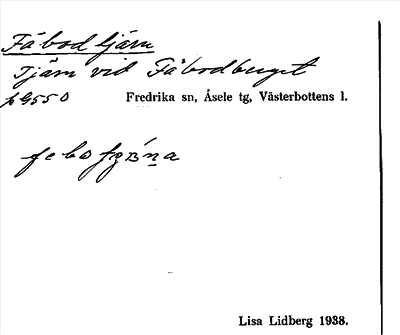 Fäbodtjärn
Tjärn vid Fäbodberget
Fredrika sn, Åsele tg, Västerbottens l.
Lisa Lidberg 1938.